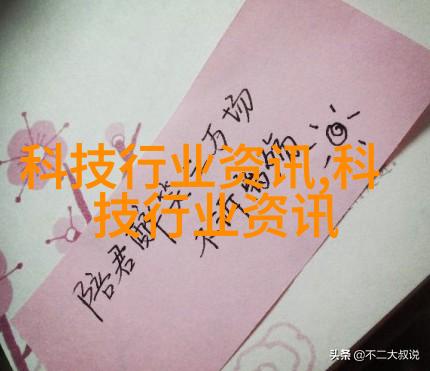 科技行业资讯,科
技行业资讯
陪君醉笑 万场
头条 @不二大叔说